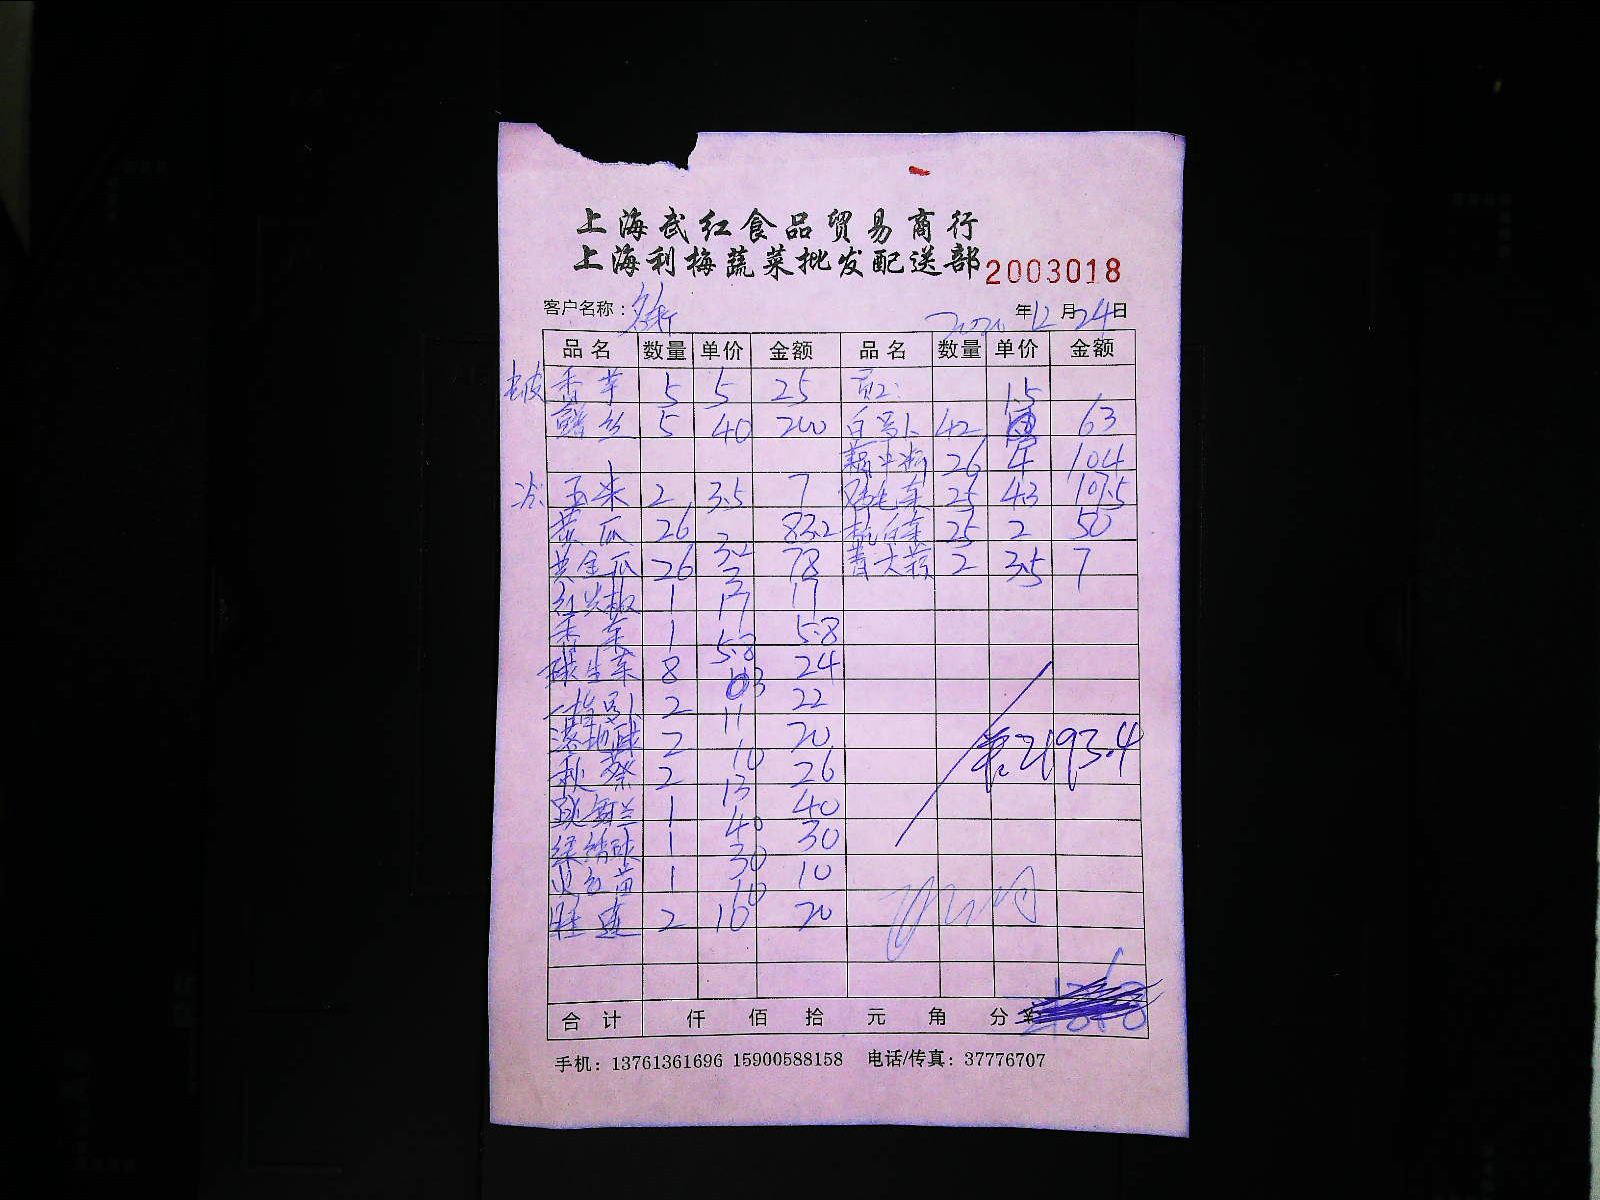 上海武红食品贸易商行
上海利梅蔬菜批发配送部 2003018
客户名称： 2020年12月24日
品名 数量 单价 金额 品名 数量 单价 金额
香芋 5 5 25 员工:
鳝丝 5 40 200 白萝卜 42 1.5 63
26 4 104
冷: 玉米 2 3.5 7 鸡毛菜 25 4.3 107.5
黄瓜 26 3.2 83.2 杭白菜 25 2 50
黄金瓜 26 3 78 青大蒜 2 3.5 7
红尖椒 1 17 17
1 5.8 5.8
球生菜 8 3 24
一指萝卜 2 11 22
2 10 20
秋葵 2 13 26
跳舞兰 1 40 40
1 30 30
1 10 10
2 10 20
2193.4
合计 仟 佰 拾 元 角 分
手机：13761361696 15900588158 电话/传真：37776707